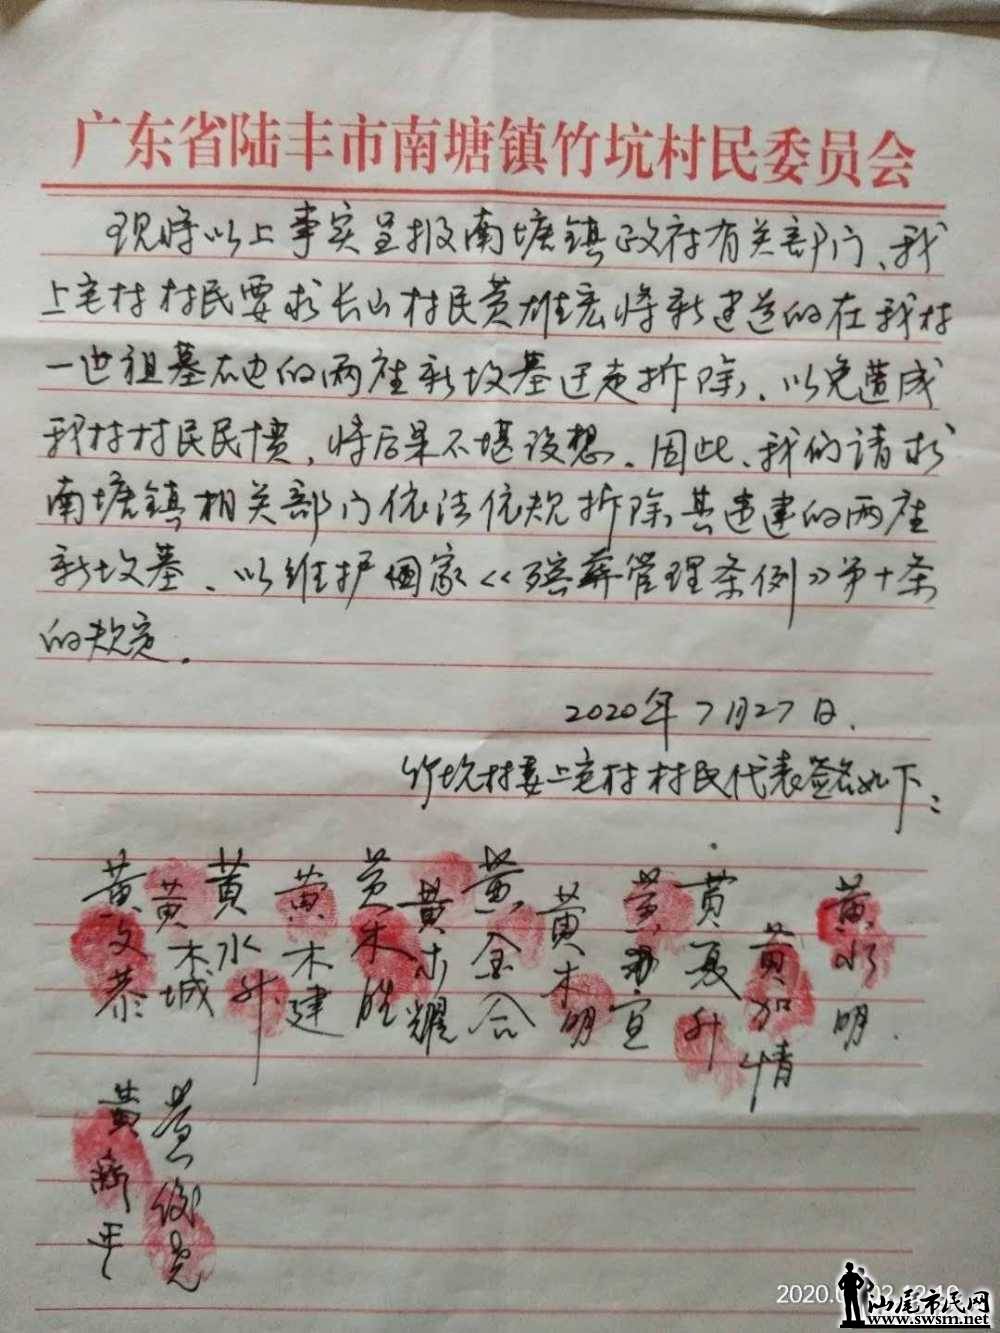 广东省陆丰市南塘镇竹坑村民委员会
现将以上事实呈报南塘镇政府有关部门、我
上宅村村民要求长山村民黄雄宏将新建造的在我村
一世祖墓右边的两座新坟墓迁走拆除、以免造成
我村村民民愤,将后果不堪设想。因此、我们请求
南塘镇相关部门依法依规拆除其违建的两座
新坟墓、以维护国家《殡葬管理条例》第十条
的规定。
2020年7月27日.
竹坑村委上宅村村民代表签名如下:
黄文恭
黄木城
黄水升
黄木建
黄木胜
黄木耀
黄金合
黄木明
黄宣
黄夏升
黄加情
黄水明.
黄新平
黄俊
2020.0 02 12:10
汕尾市民网
www.swsm.net